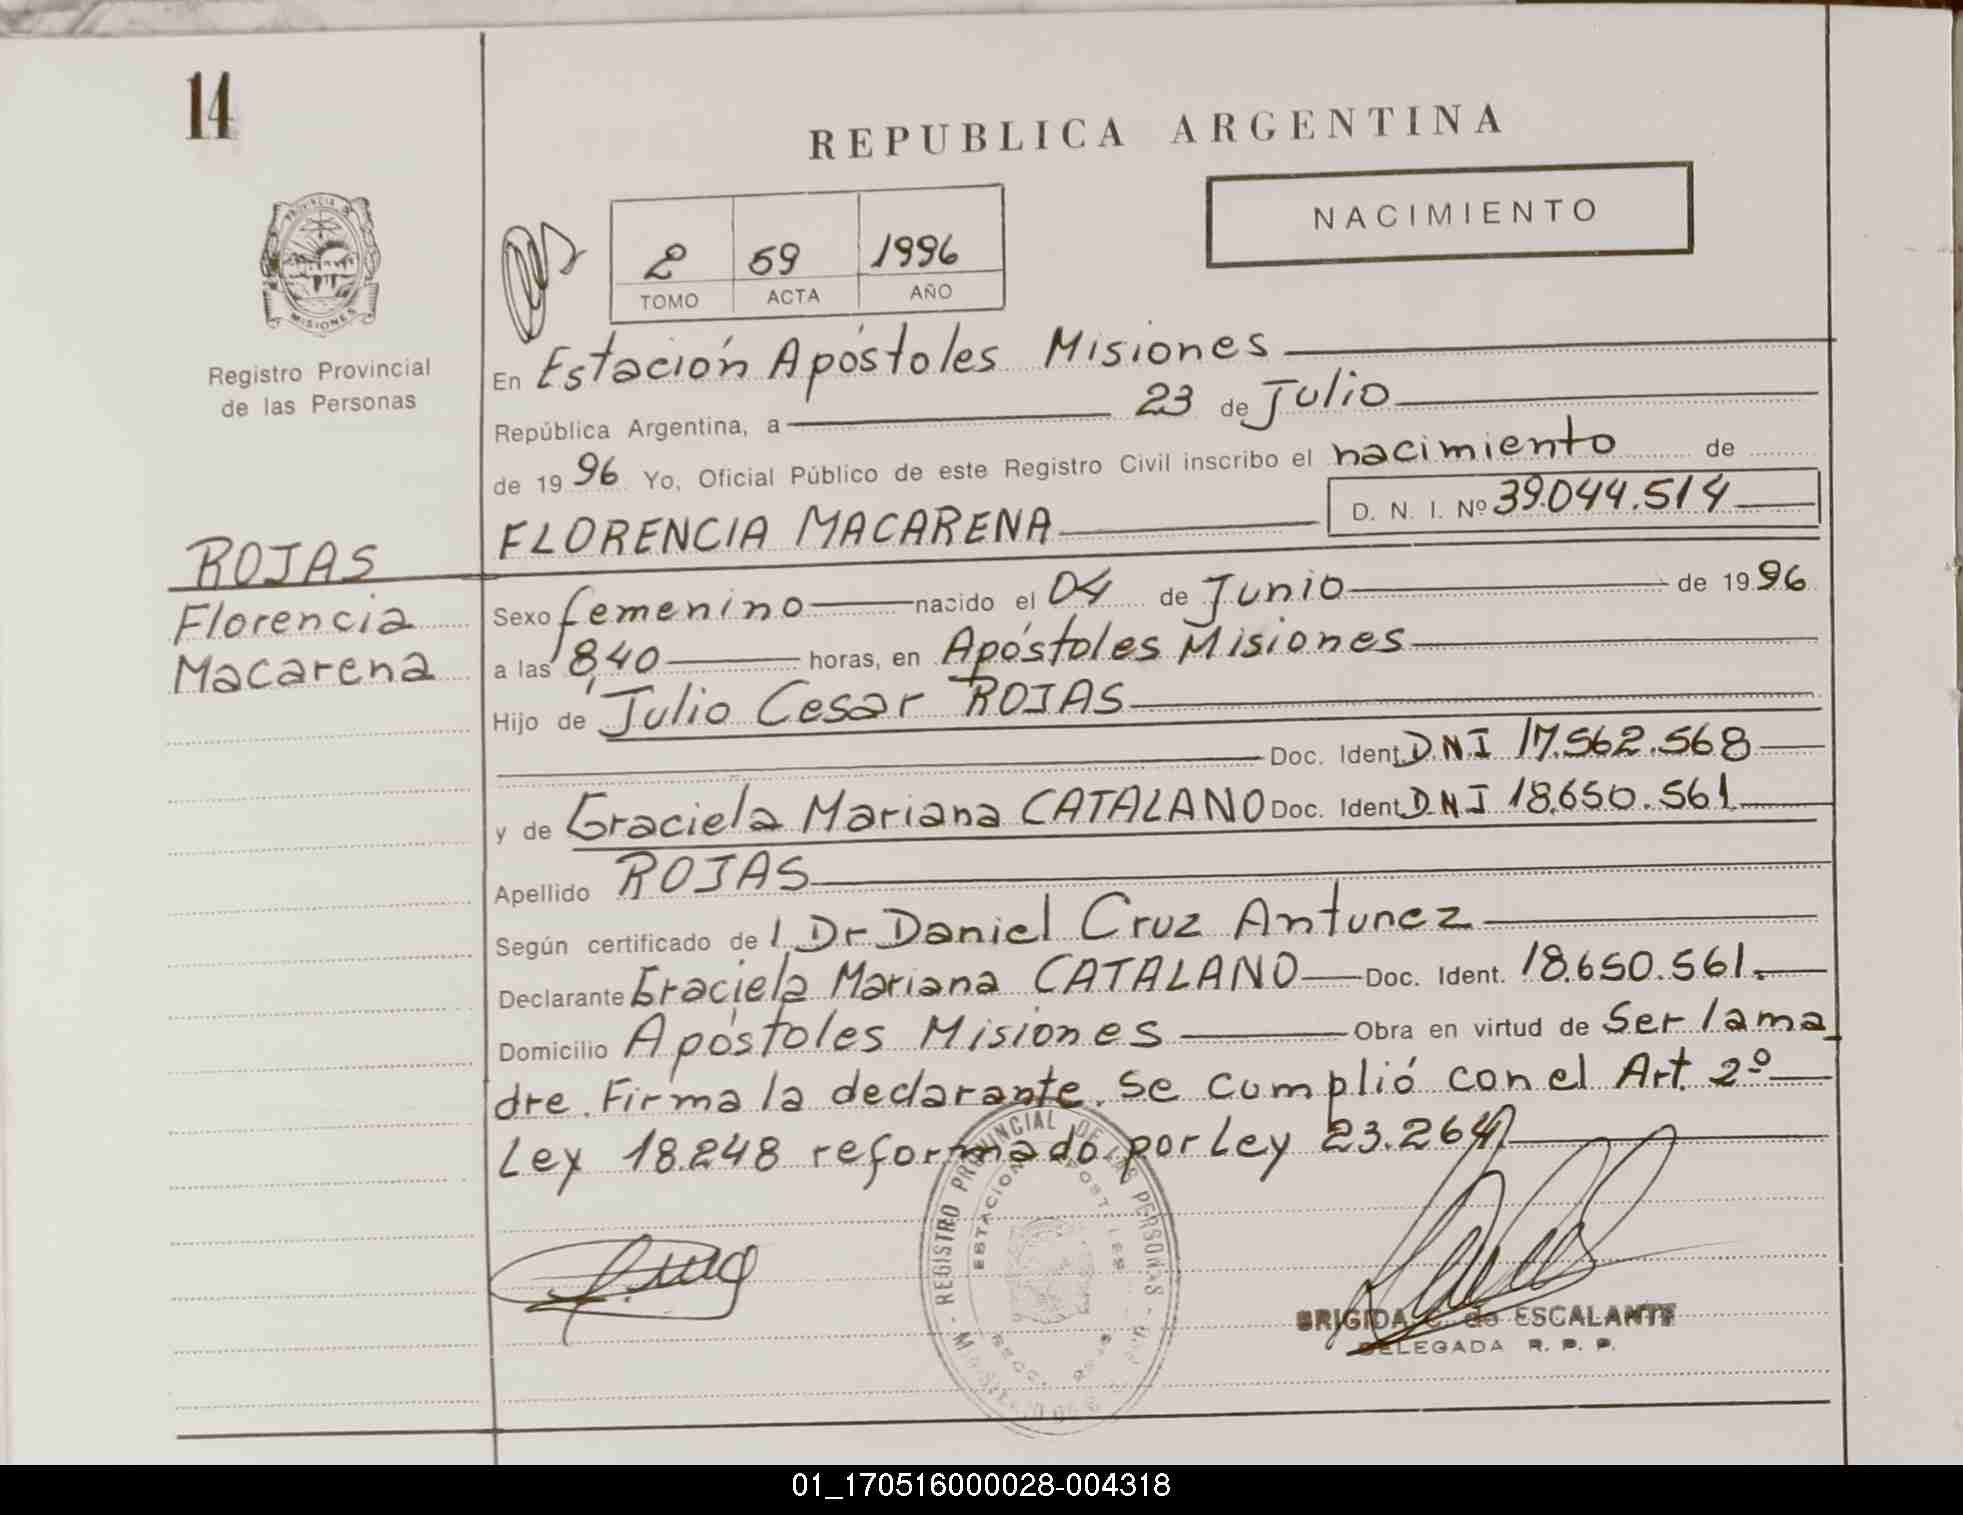 14
REPUBLICA ARGENTINA
NACIMIENTO
2 59 1996
TOMO ACTA AÑO
PROVINCIA DE
MISIONES
Registro Provincial
de las Personas
En Estación Apóstoles Misiones
República Argentina, a 23 de Julio
de 1996 Yo, Oficial Público de este Registro Civil inscribo el nacimiento de
D. N. I. Nº 39.044.514
FLORENCIA MACARENA
ROJAS
Florencia
Macarena
Sexo femenino nacido el 04 de Junio de 1996
a las 8,40 horas, en Apóstoles Misiones
Hijo de Julio Cesar ROJAS
Doc. Ident. DNI 17.562.568
y de Graciela Mariana CATALANO Doc. Ident. DNI 18.650.561
Apellido ROJAS
Según certificado de l Dr Daniel Cruz Antunez
Declarante Graciela Mariana CATALANO Doc. Ident. 18.650.561.
Domicilio Apóstoles Misiones Obra en virtud de Ser la ma
dre. Firma la declarante. Se cumplió con el Art. 2º
Ley 18.248 reformado por Ley 23.264
REGISTRO PROVINCIAL DE LAS PERSONAS
ESTACION
BRIGIDA C. de ESCALANTE
DELEGADA R. P. P.
01_170516000028-004318